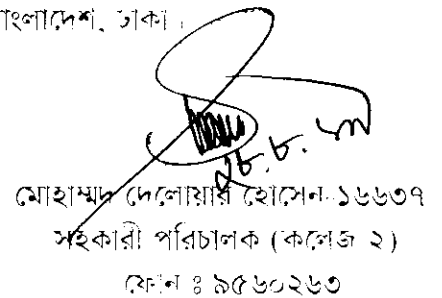 বাংলাদেশ, ঢাকা।
মোহাম্মদ দেলোয়ার হোসেন-১৬৬৩৭
সহকারী পরিচালক (কলেজ ২)
ফোন ঃ ৯৫৬০২৬৩